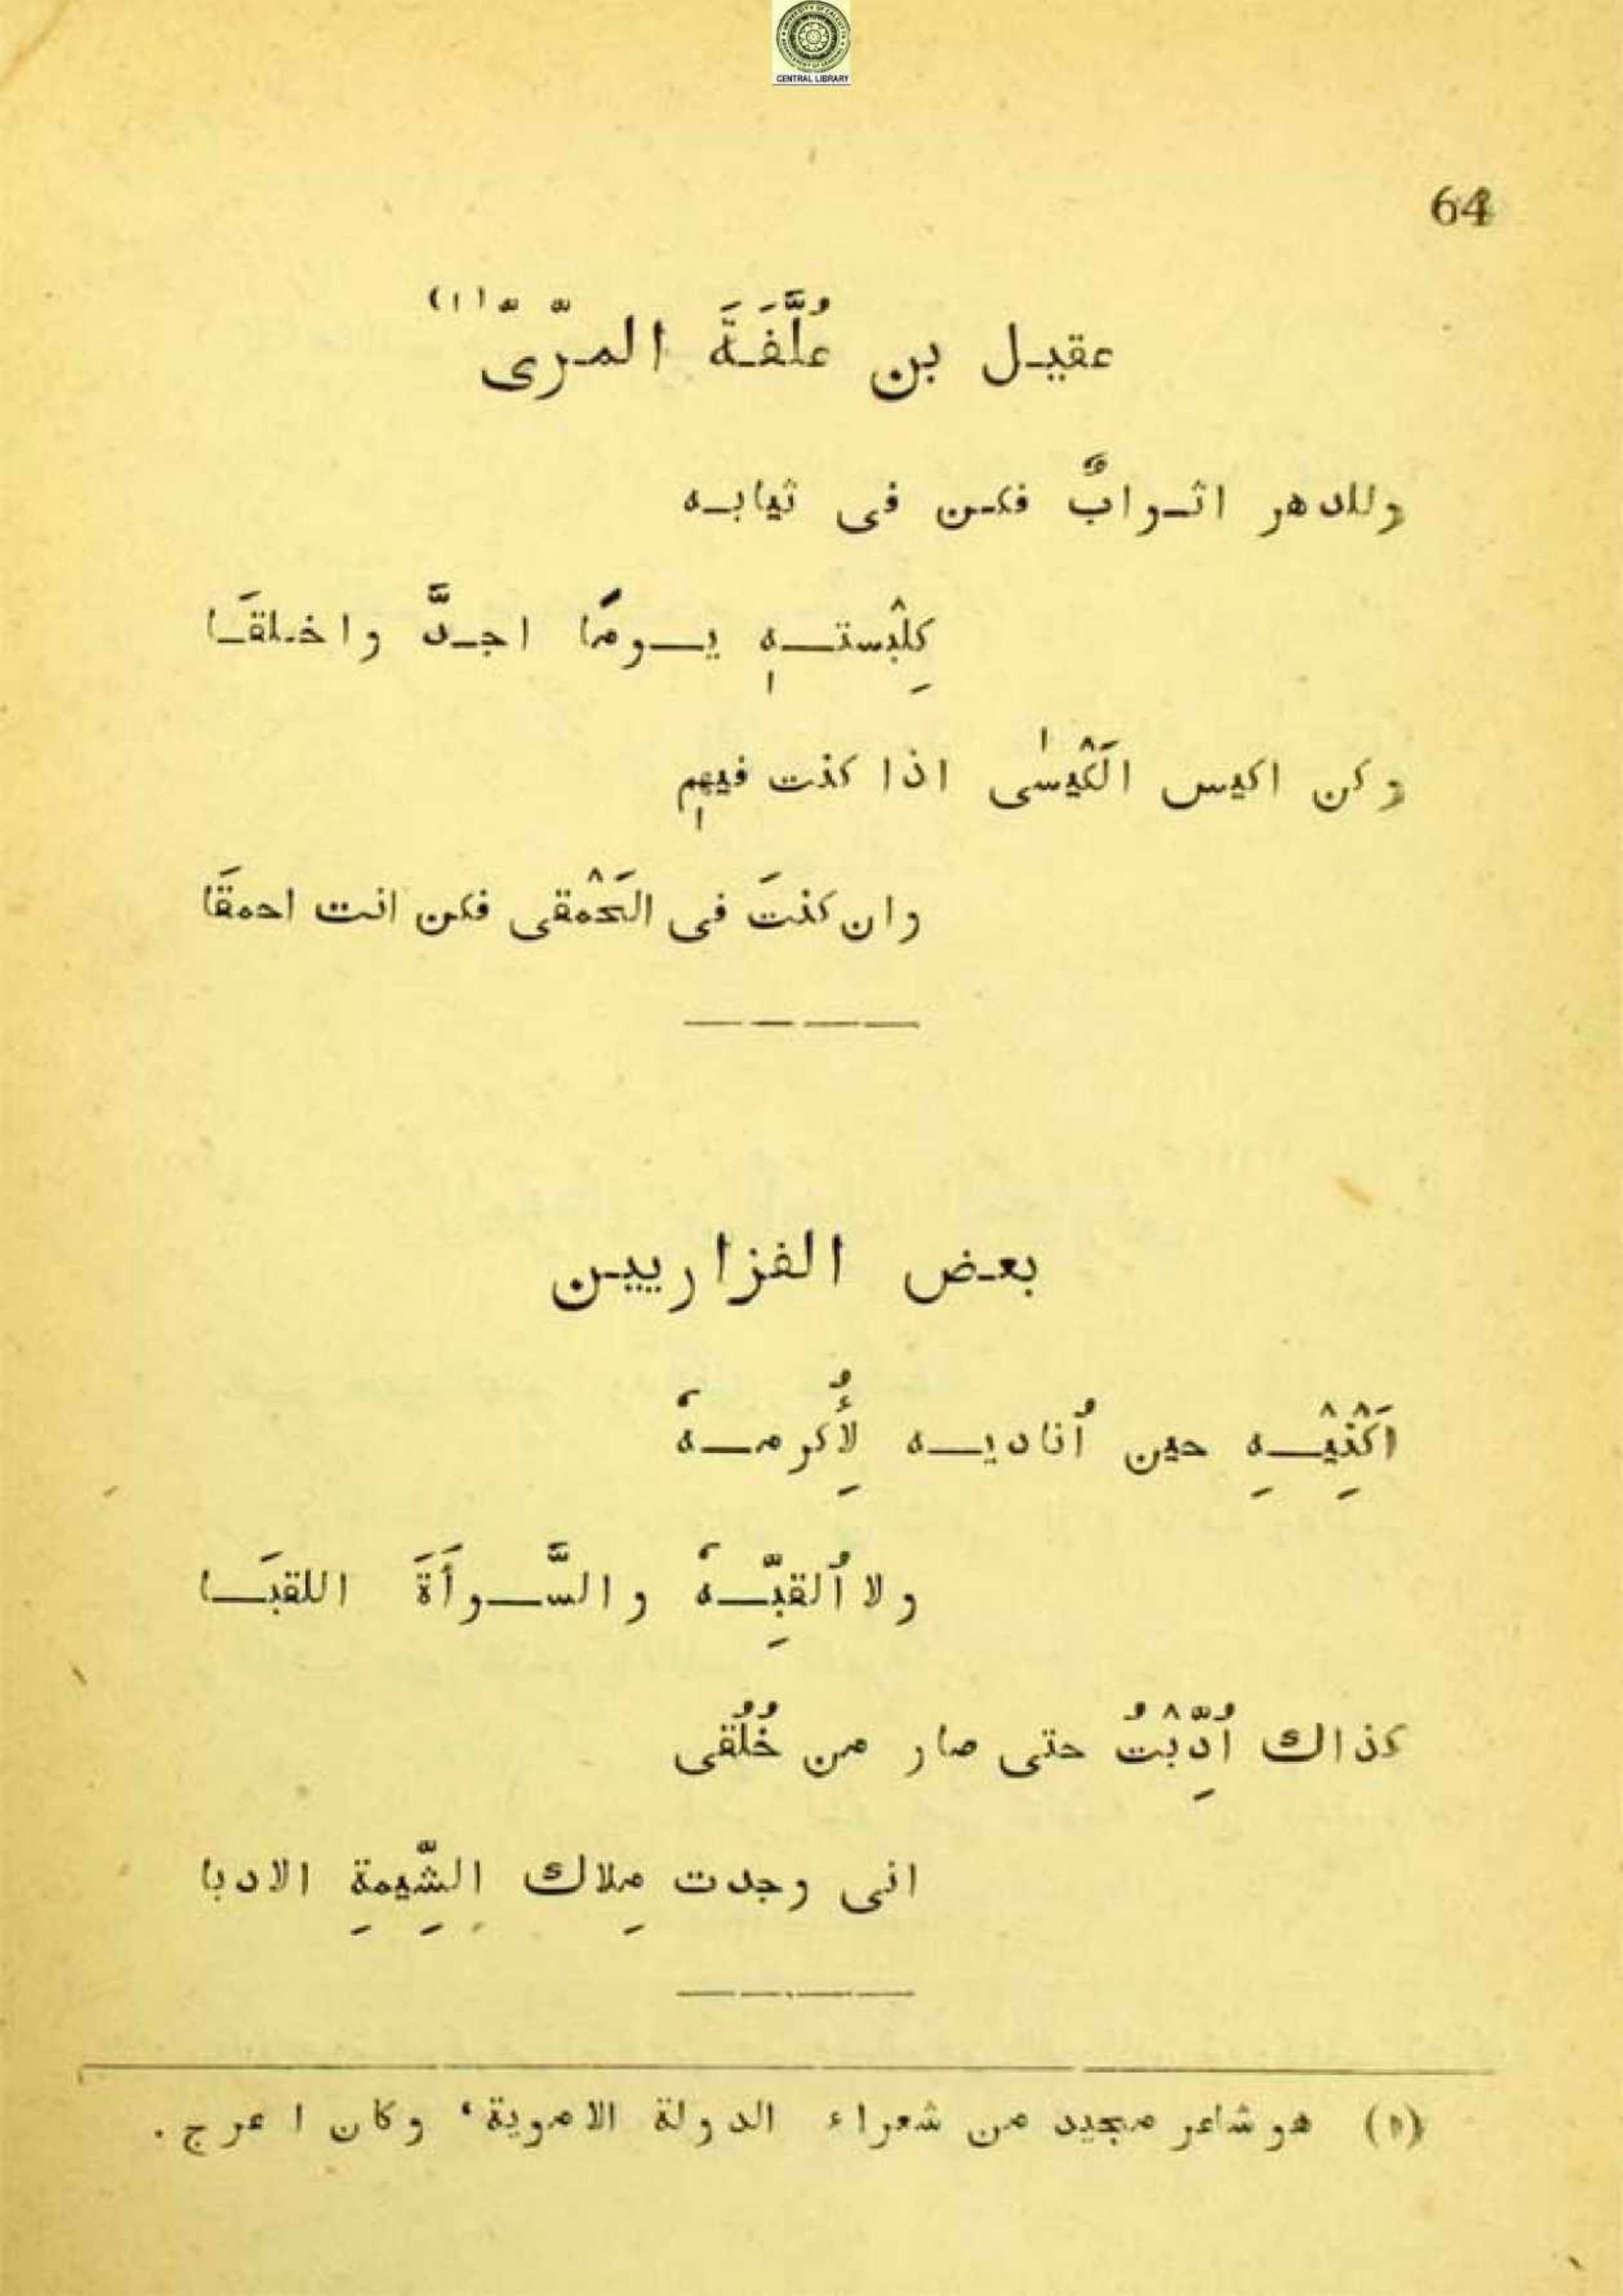 CENTRAL LIBRARY
64
عقيل بن عُلَّفَةَ المرّىّ (١)
وللدهر اثوابٌ فكن فى ثيابه
كِلبْستهٖ يومًا اجدَّ واخلقَا
وكن اكيس الَكْيسٰى اذا كنت فيهٖم
وان كنتَ فى الحَمْقى فكن انت احمقَا
بعض الفزاريين
اَكْنِيْهِ حين اُناديه لِأُكرمهٗ
ولا اُلقِّبهٗ والسَّوأَةَ اللقبَا
كذاك اُدِّبْتُ حتى صار من خُلُقى
انى وجدت مِلاك الشِّيمةِ الادبا
(١) هو شاعر مجيد من شعراء الدولة الاموية، وكان اعرج.